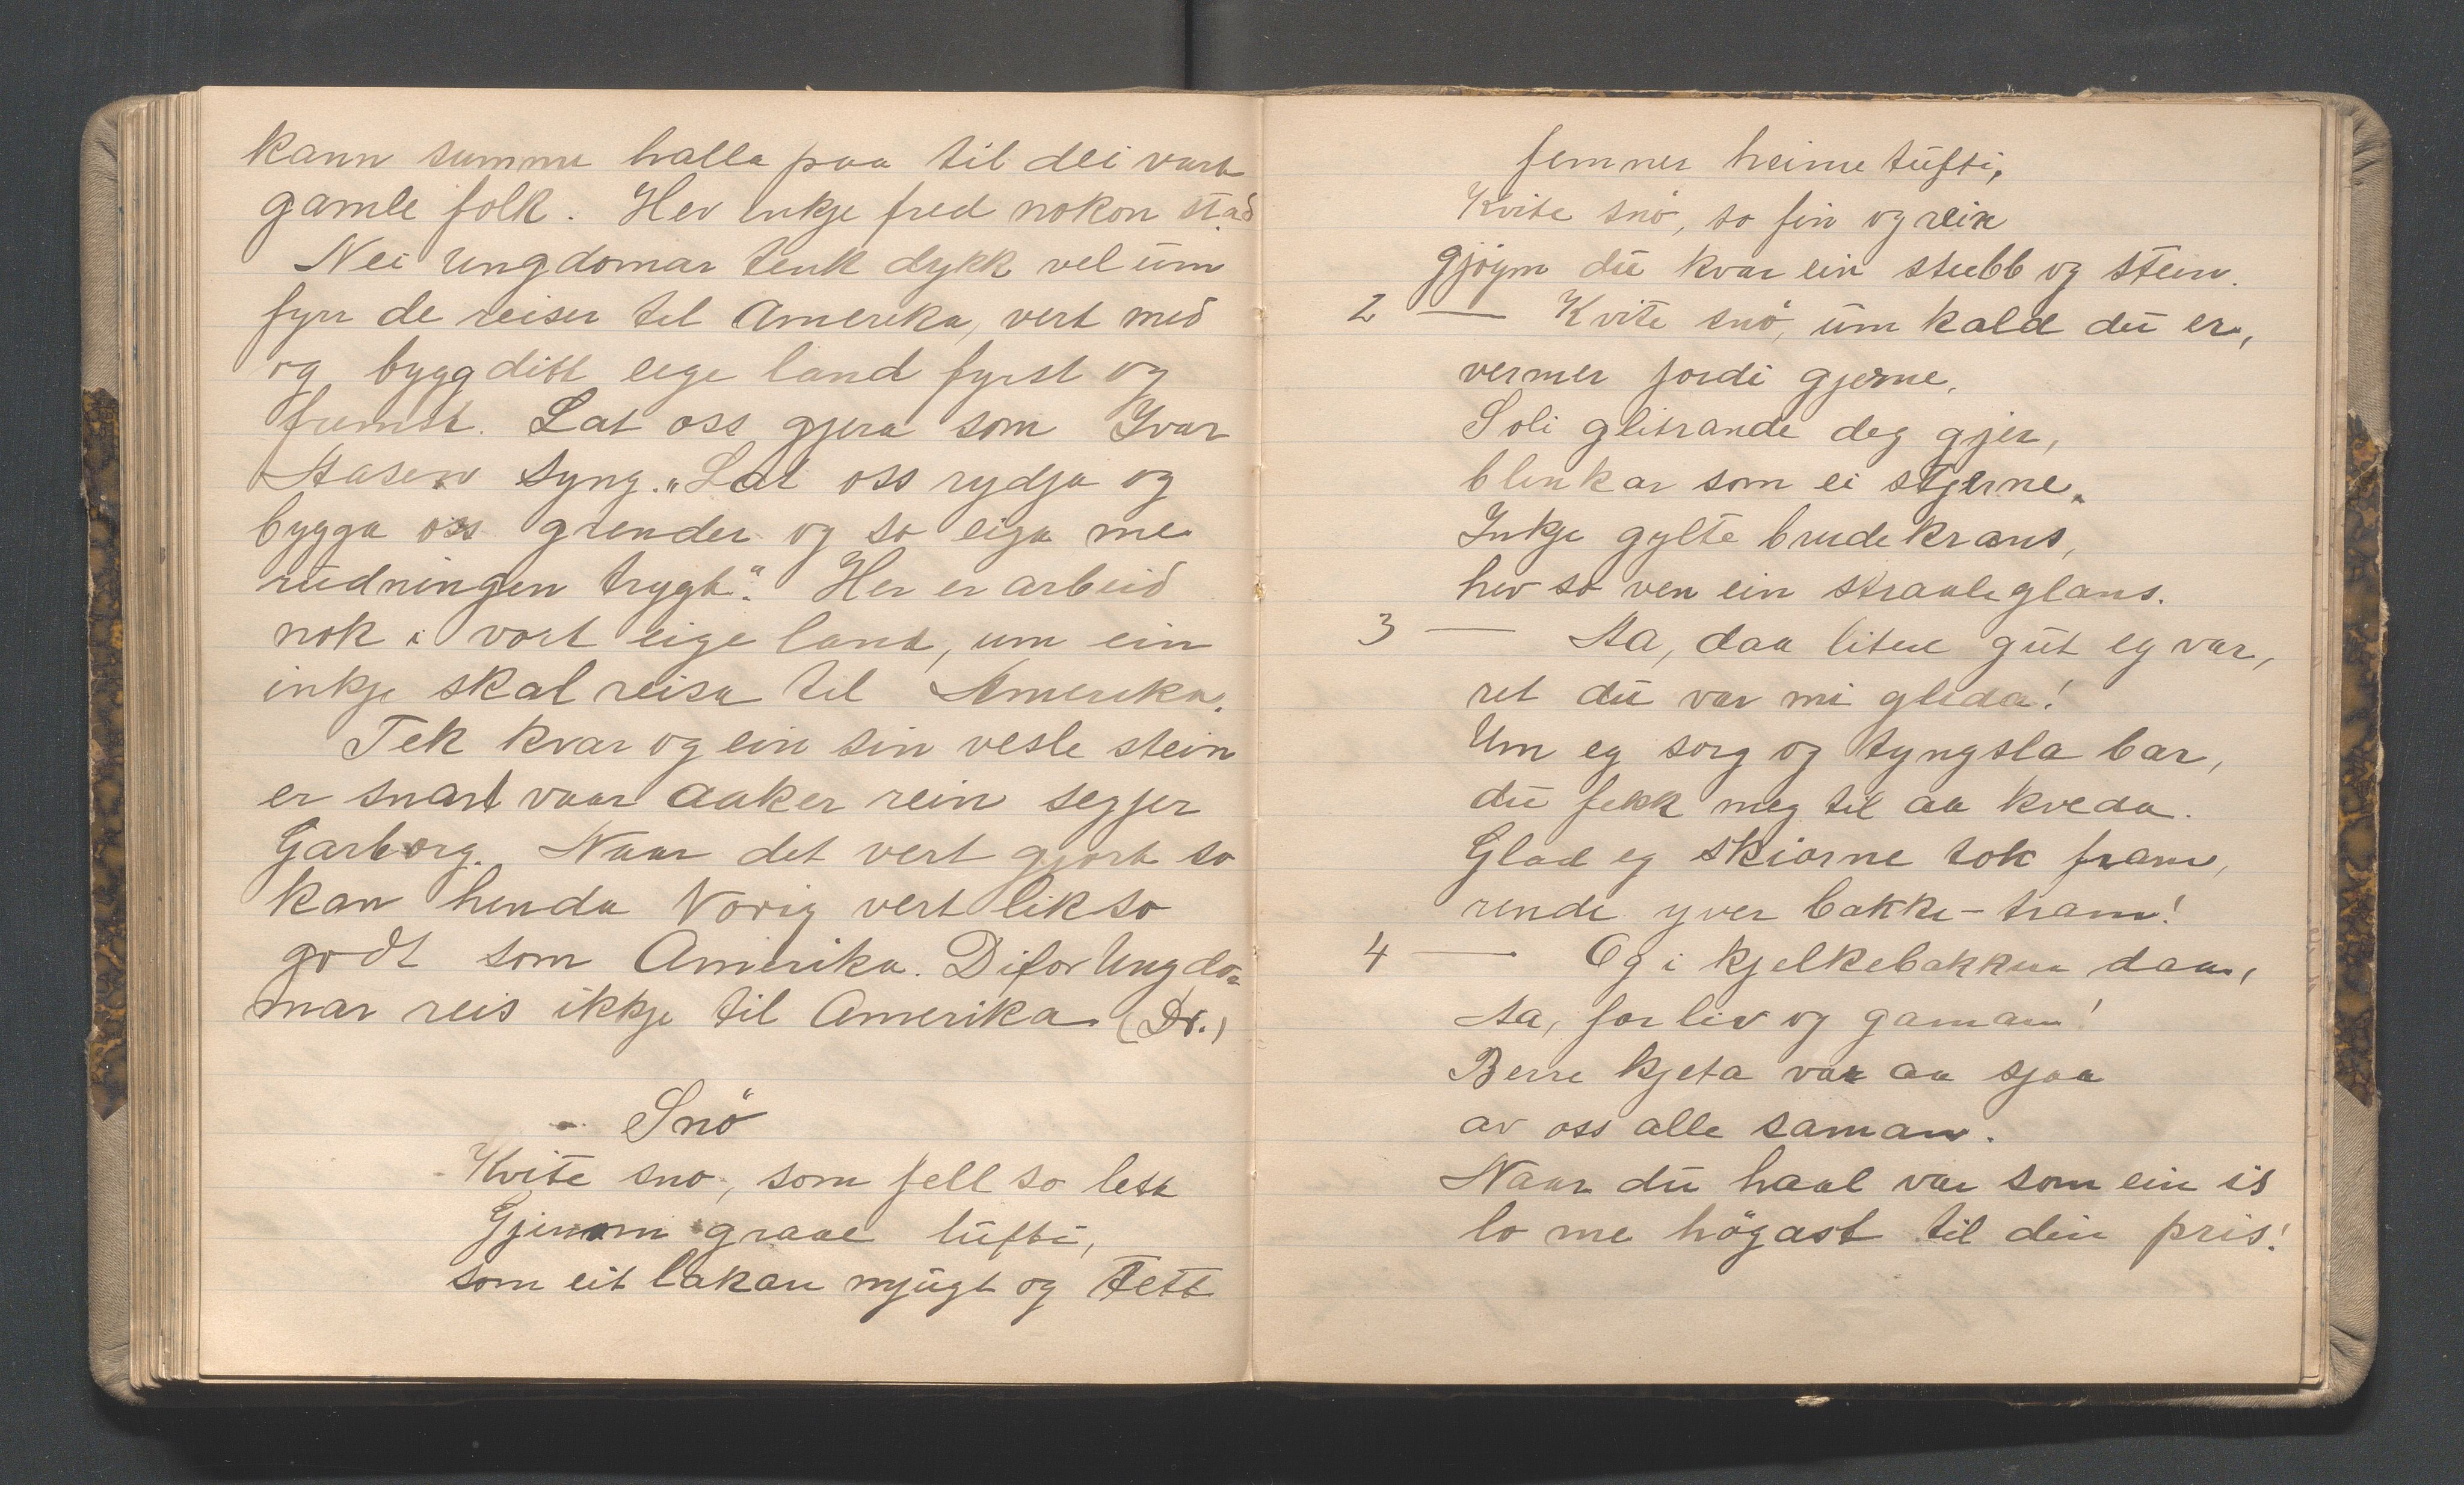 kann summe halla paa til dei vart
gamle folk. Hev inkje fred nokon stad
Nei ungdomar tenk dykk vel um
fyrr de reiser til Amerika, vert med
og bygg ditt eige land fyrst og
fremst. Lat oss gjera som Ivar
Aasen syng. „Lat oss rydja og
bygga oss grender og so eiga me
rudningen trygt." Her er arbeid
nok i vort eige land, um ein
inkje skal reisa til Amerika.
Tek kvar og ein sin vesle stein
er snart vaar aaker rein segjer
Garborg. Naar det vert gjort so
kan henda Norig vert likso
godt som Amerika. Difor Ungdo-
mar reis ikkje til Amerika. (Dr.)
Snö
Kvite snö, som fell so lett
Gjenom graae lufti,
som eit lakan mjugt og tett
femner heime tufti,
Kvite snö, so fin og rein
gjöym du kvar ein stubb og stein.
2 — Kvite snö, um kald du er,
vermer jordi gjerne,
Soli glitrande deg gjer,
blinkar som ei stjerne.
Inkje gylte brudekrans,
hev so ven ein straaleglans.
3 — Aa, daa liten gut eg var,
ret du var mi gleda!
Um eg sorg og tyngsla bar,
du fekk meg til aa kveda.
Glad eg skiorne tok fram,
rende yver bakke-tram!
4 — Og i kjelkebakken daa,
Aa, for liv og gaman!
Berre kjeta var aa sjaa
av oss alle saman.
Naar du haal var som ein is
lo me högast til din pris!